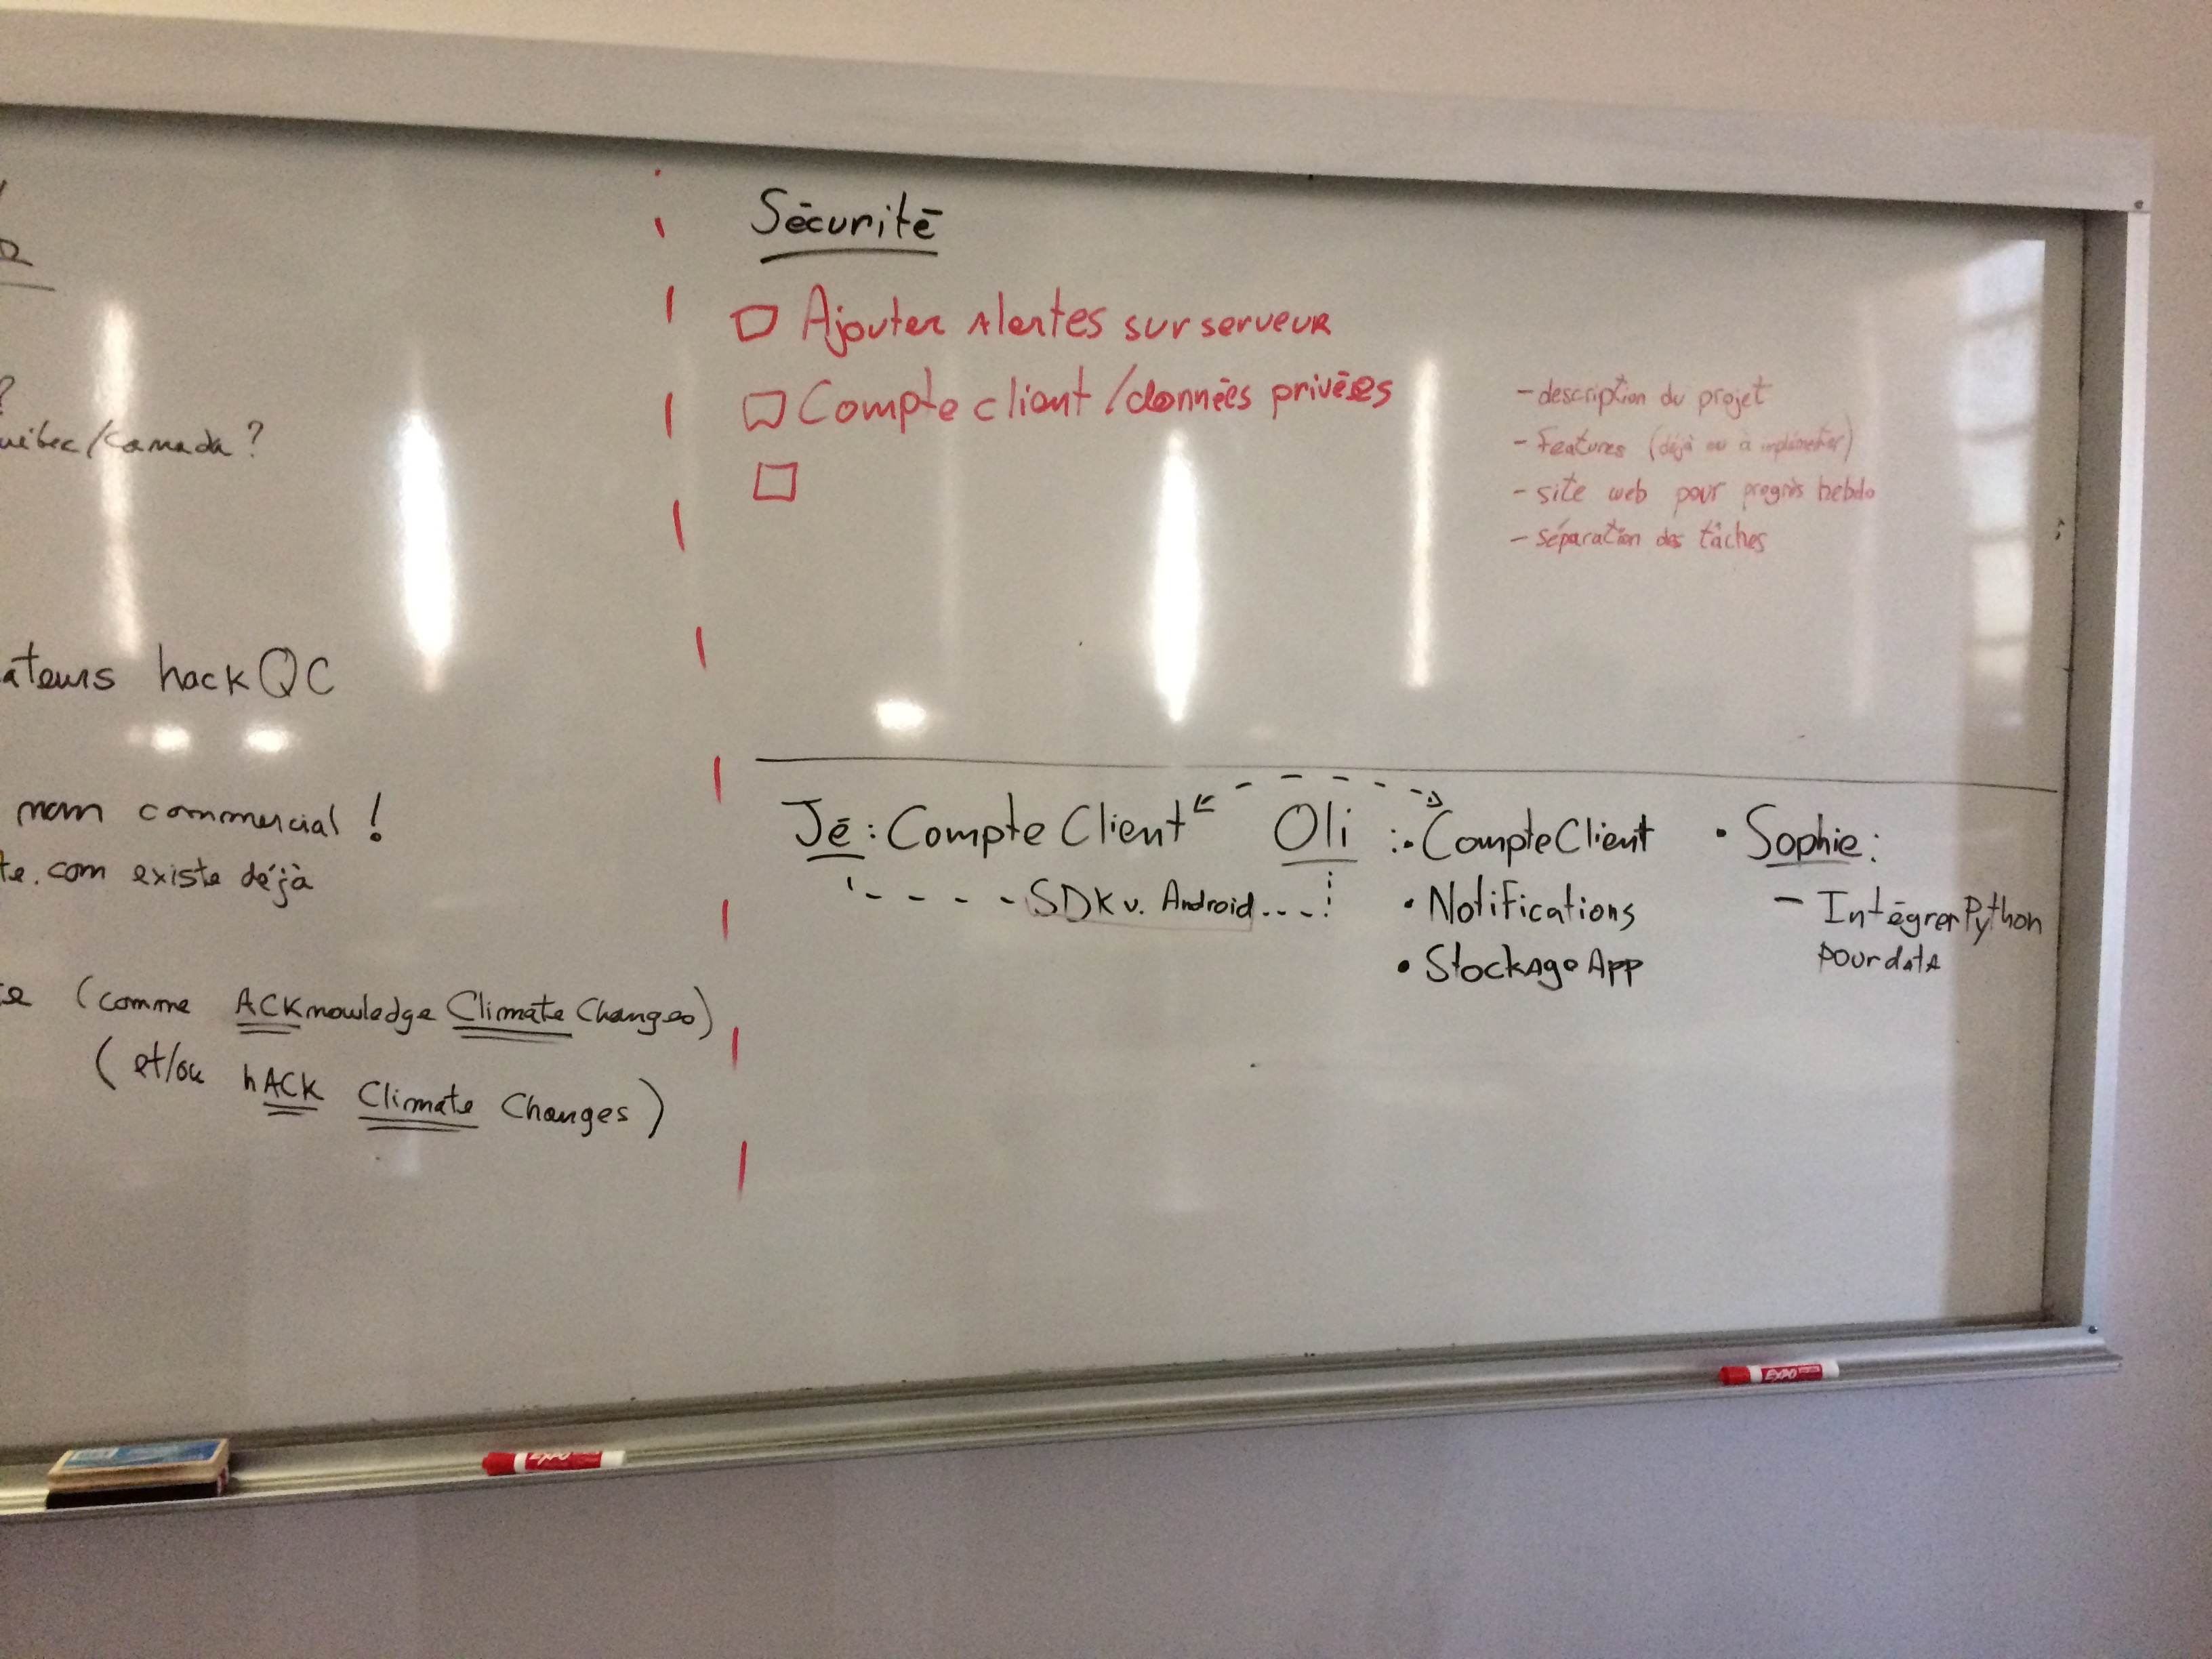 ?
/Canada ?
hackQC
nom commercial !
.com existe déjà
(comme ACKnowledge Climate Changes)
(et/ou hACK Climate Changes)
Sécurité
Ajouter Alertes sur serveur
Compte client / données privées
- description du projet
- Features (déjà ou à implémenter)
- site web pour progrès hebdo
- séparation des tâches
Jé : Compte Client Oli : • Compte Client • Sophie :
SDK v. Android • Notifications - Intégrer Python
• Stockage App pour data
EXPO
EXPO